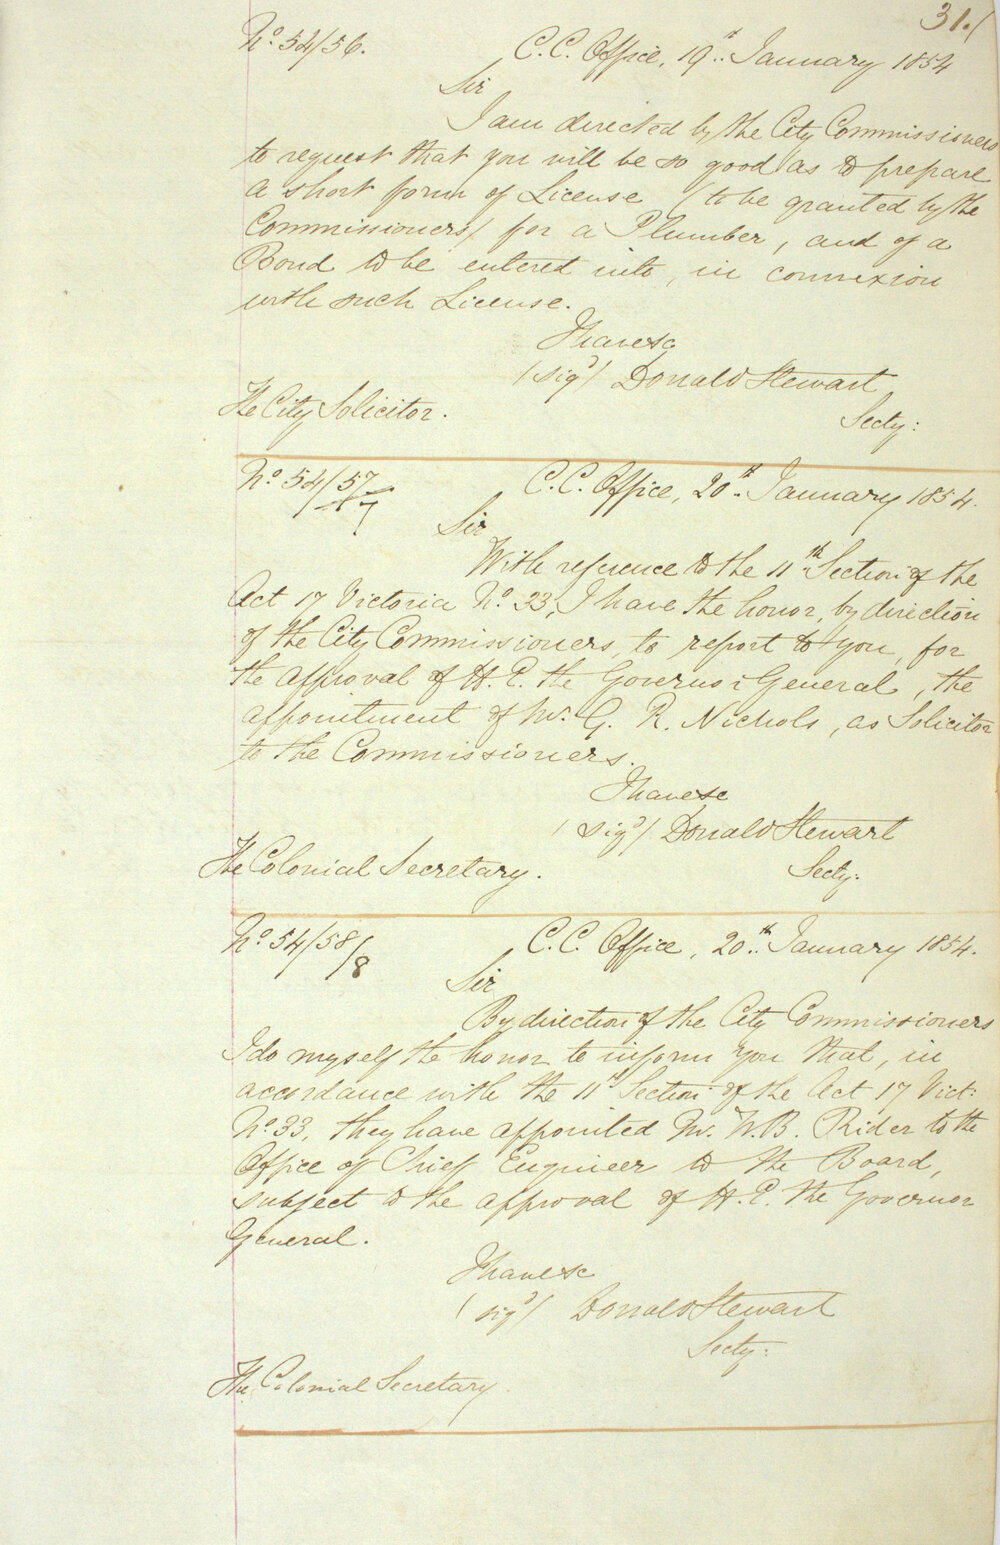 31.
No. 54/56.
C.C. Office, 19th January 1854
Sir
I am directed by the City Commissioners
to request that you will be so good as to prepare
a short form of License (to be granted by the
Commissioners) for a Plumber, and of a
Bond to be entered into, in connexion
with such License.
I have &c
(sigd) Donald Stewart
Secty:
The City Solicitor.
No. 54/57/7
C.C. Office, 20th January 1854.
Sir
With reference to the 11th Section of the
Act 17 Victoria No. 33, I have the honor, by direction
of the City Commissioners, to report to you, for
the approval of H.E. the Governor General, the
appointment of Mr. G. R. Nichols, as Solicitor
to the Commissioners.
I have &c
(sigd) Donald Stewart
Secty:
The Colonial Secretary.
No. 54/58/8
C.C. Office, 20th January 1854.
Sir
By direction of the City Commissioners
I do myself the honor to inform you that, in
accordance with the 11th Section of the Act 17 Vict:
No. 33, they have appointed Mr. W.B. Rider to the
Office of Chief Engineer to the Board,
subject to the approval of H.E. the Governor
General.
I have &c
(sigd) Donald Stewart
Secty:
The Colonial Secretary.